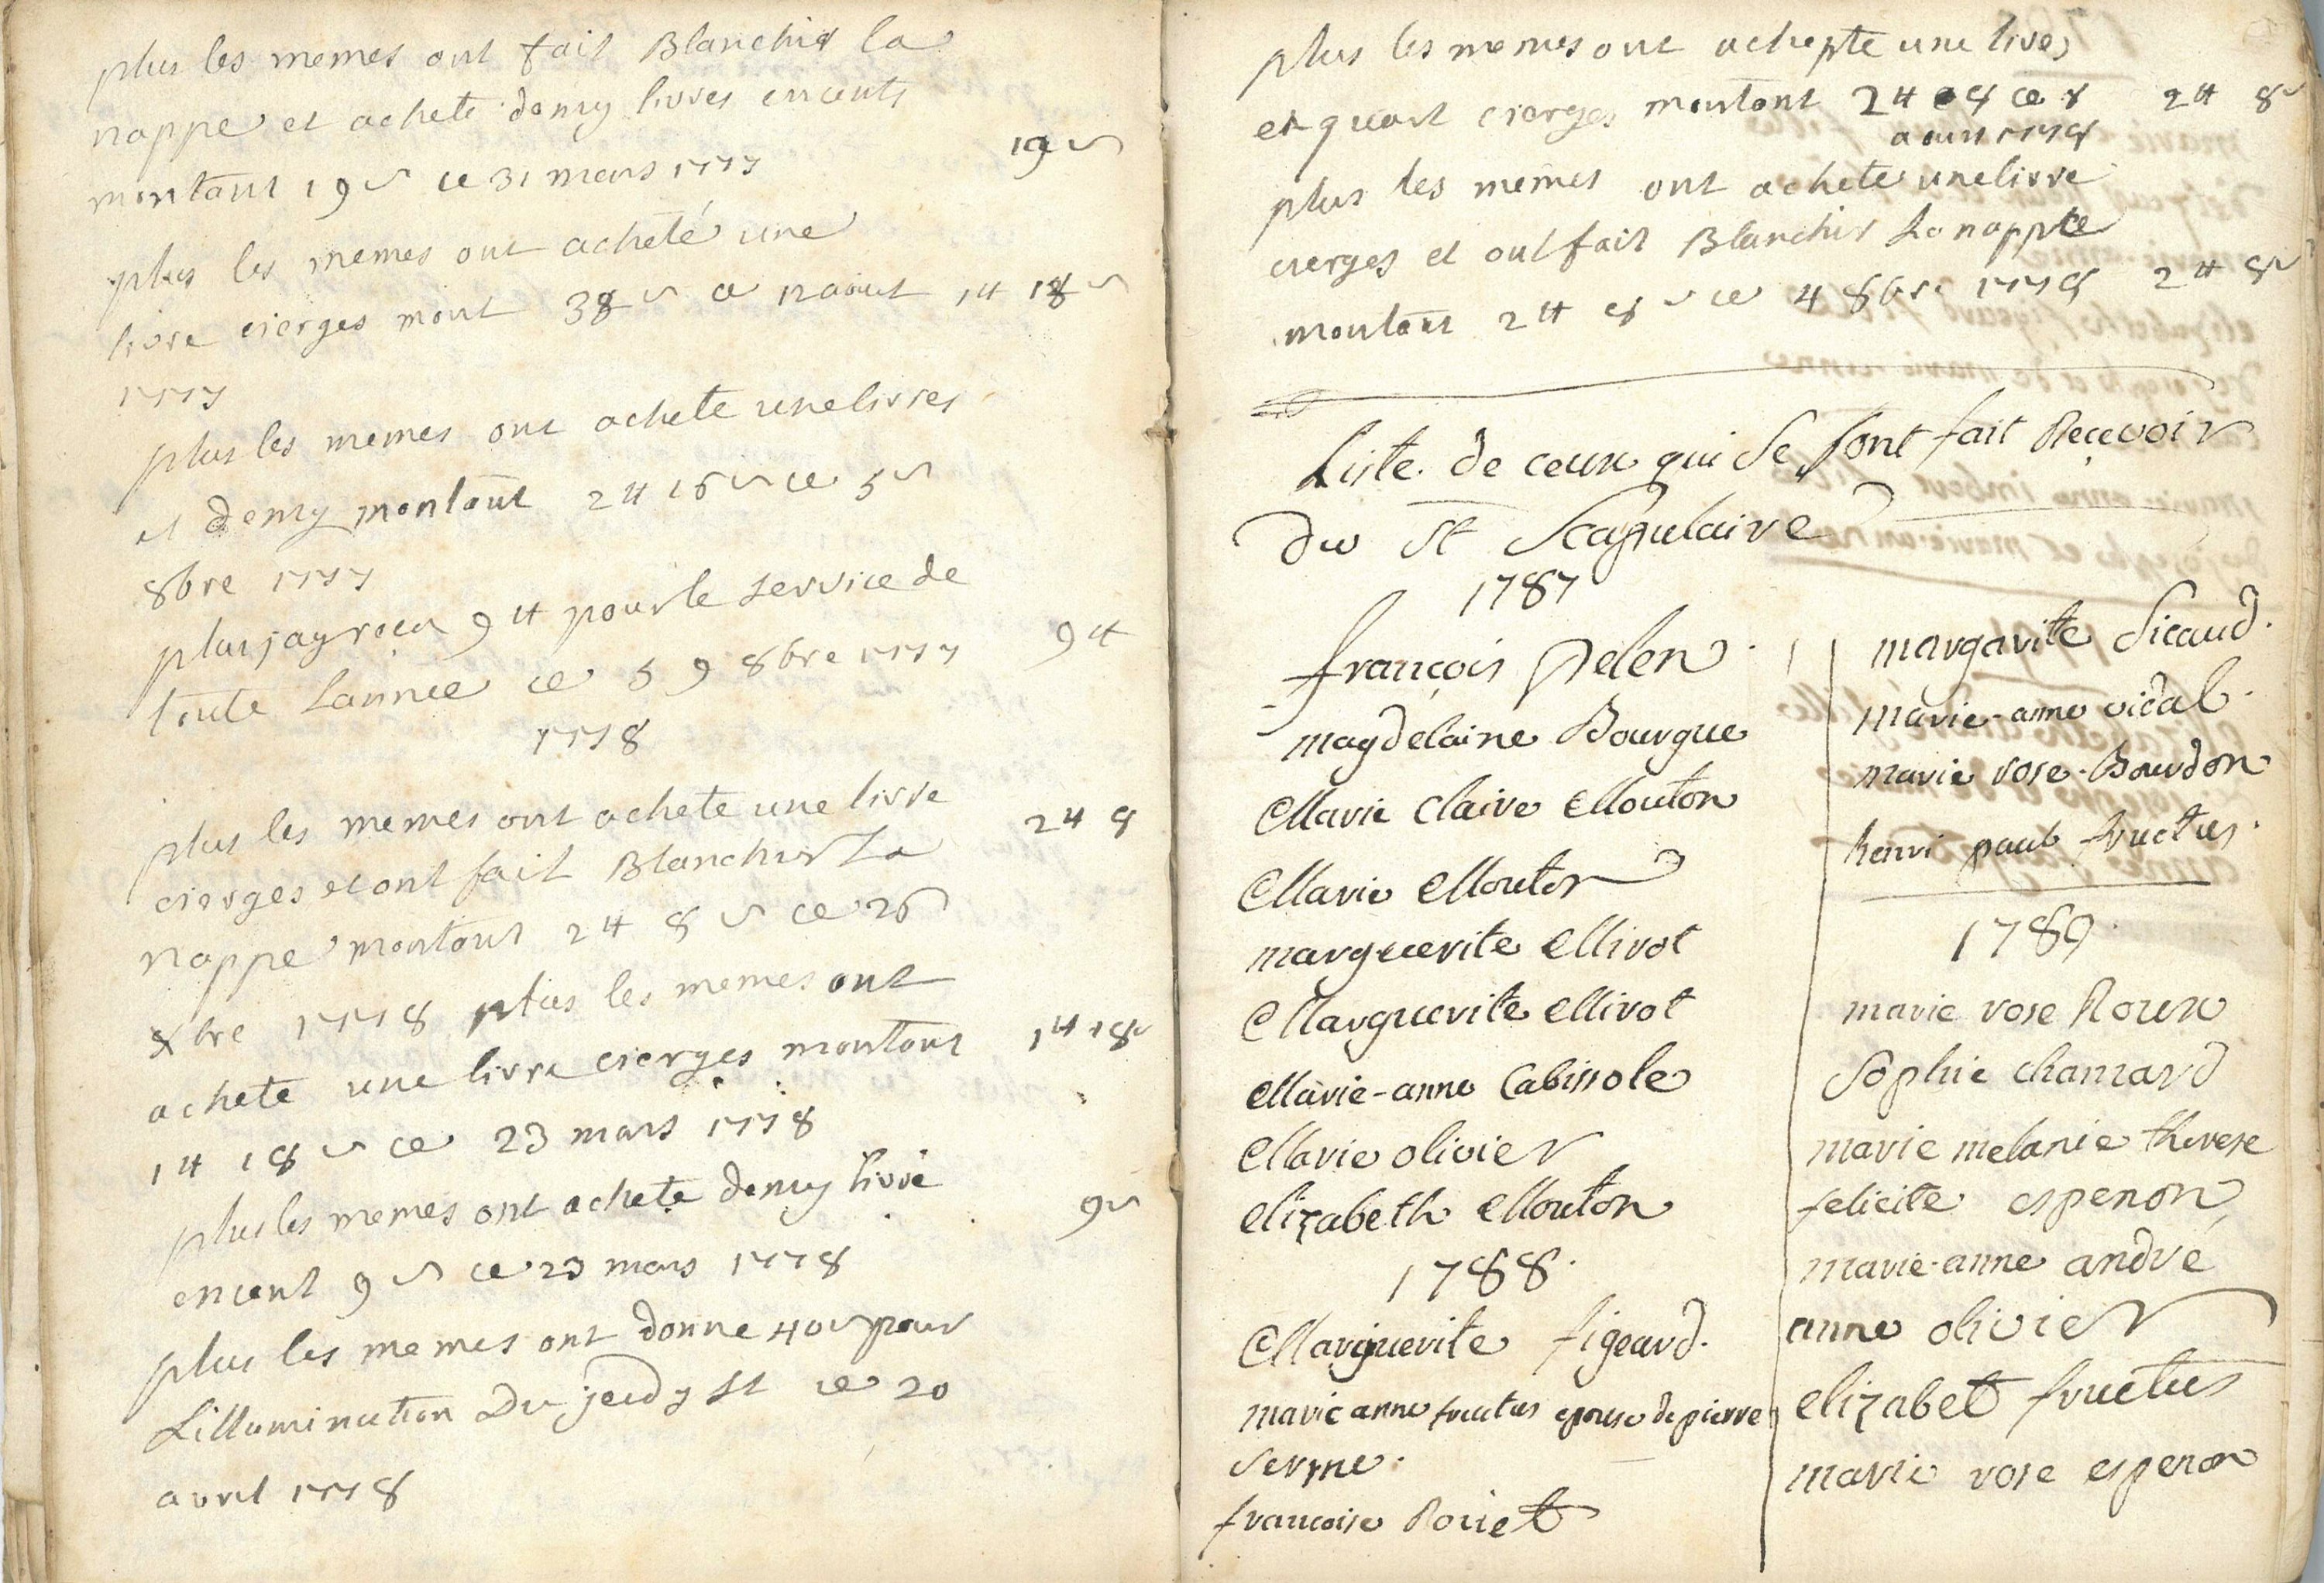 plus les memes ont fait Blanchir la
nappe et achete demy livres encents
montant 19 s ce 31 mars 1777
19 s
plus les memes ont acheté une
livre cierges mont 38 s a 12 aout
1 ₶ 18 s
1777
plus les memes ont achete une livres
et demy montant 2 ₶ 16 s ce 5
8bre 1777
plus jay reçu 9 ₶ pour le service de
toute Lannee ce 5 9 8bre 1777
9 ₶
1778
plus les memes ont achete une livre
2 ₶ 8
cierges et ont fait Blanchir La
nappe montant 2 ₶ 8 s ce 26
xbre 1778 plus les memes ont
achete une livre cierges montant
1 ₶ 18 s
1 ₶ 18 s ce 23 mars 1778
plus les memes ont achete demy livre
9 s
encent 9 s ce 23 mars 1778
plus les memes ont donne 40 s pour
Lillumination Du jeudy st ce 20
avril 1778
plus les memes ont achepte une livre
et quart cierges montant 2 ₶ 8 ce 8
2 ₶ 8 s
aoust 1778
plus les memes ont achete une livre
cierges et ont fait Blanchir La nappe
montant 2 ₶ 8 s ce 4 8bre 1778
2 ₶ 8 s
Liste de ceux qui se sont fait Reçevoir
du St Scapulaire
1787
françois Pelen
magdelaine Bourgue
Marie Claire Mouton
Marie Mouton
marguerite Mirot
Marguerite Mirot
Marie-anne Cabissole
Marie olivier
elizabeth Mouton
1788
Marguerite figeard
marie anne fructus epouse de pierre
serpne
francoise Roiiet
margarite Sicaud
marie-anne vidal
marie rose Bourdon
henri paul fructus
1789
marie rose Roux
Sophie chamard
marie melanie therese
felicite espenon
marie-anne andré
anne olivier
elizabet fructus
marie rose espenon